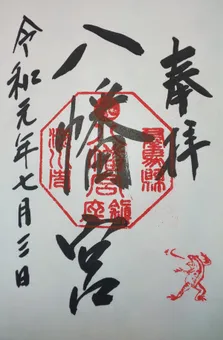 奉拝
八幡宮
令和元年七月三日